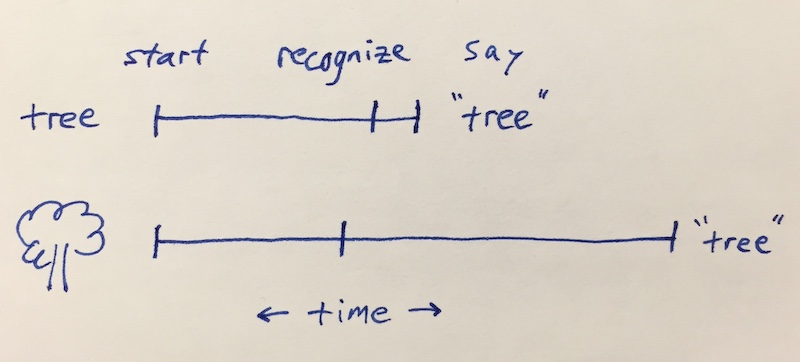 start recognize say
tree "tree"
"tree"
← time →